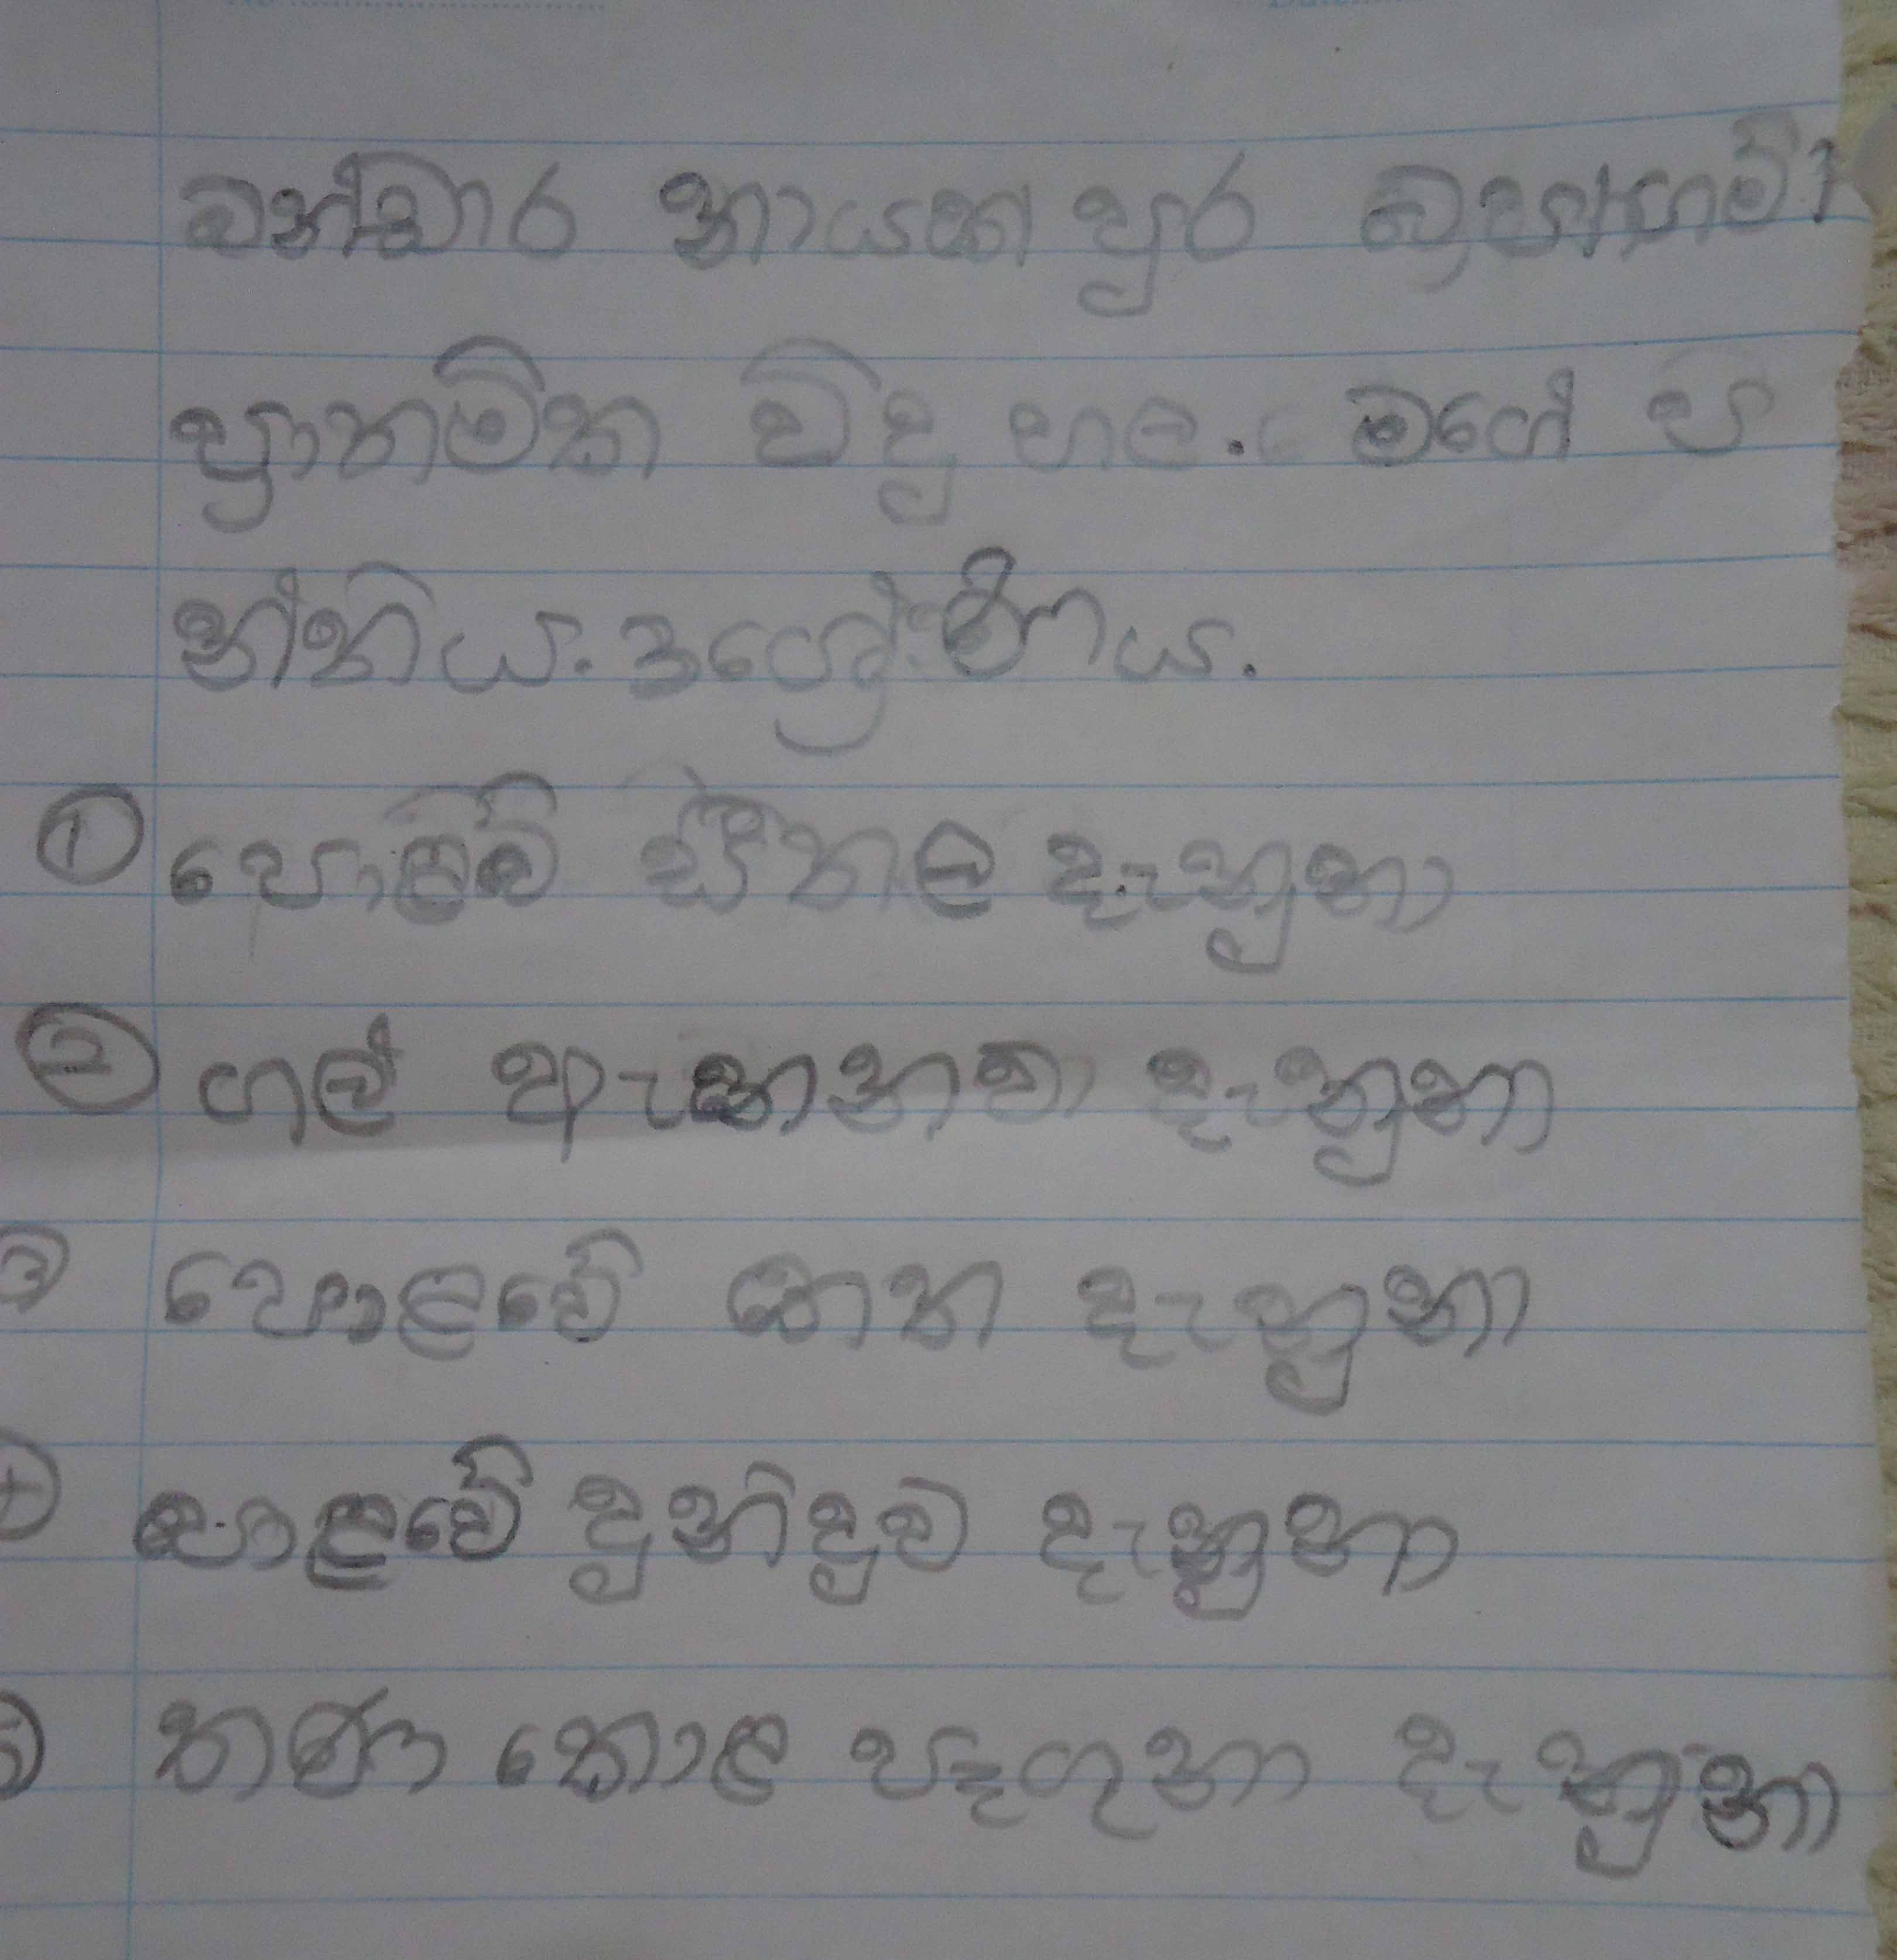 බන්ඩාර නායක පුර
ප්‍රාතමික විදු හල. මගේ ප
න්තිය. 3ශ්‍රේණිය.
① පොළවේ සීතල දැනුනා
② ගල් ඇනෙනවා දැනුනා
③ පොළවේ ගැන දැනුනා
④ පාළවේ දුන්දුව දැනුනා
⑤ තණ කොළ පෑගුනා දැනුනා